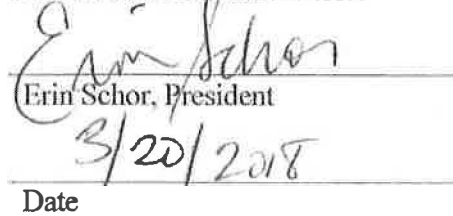 Erin Schor
Erin Schor, President
3/20/2018
Date